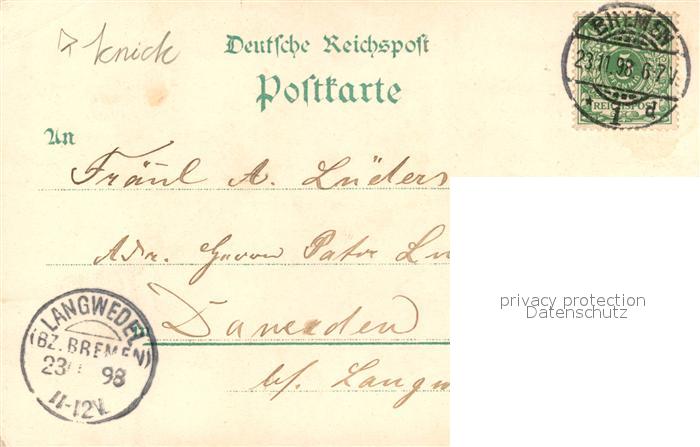 knick
Deutsche Reichspost
Postkarte
An
Fräul A. Lüders
Adr. Herrn Pator Lü
Daverden
bf. Langw
BREMEN
23.11.98 6-7V.
* 1 d
REICHSPOST
LANGWEDEL
(BZ. BREMEN)
23 98
11-12V.
privacy protection
Datenschutz